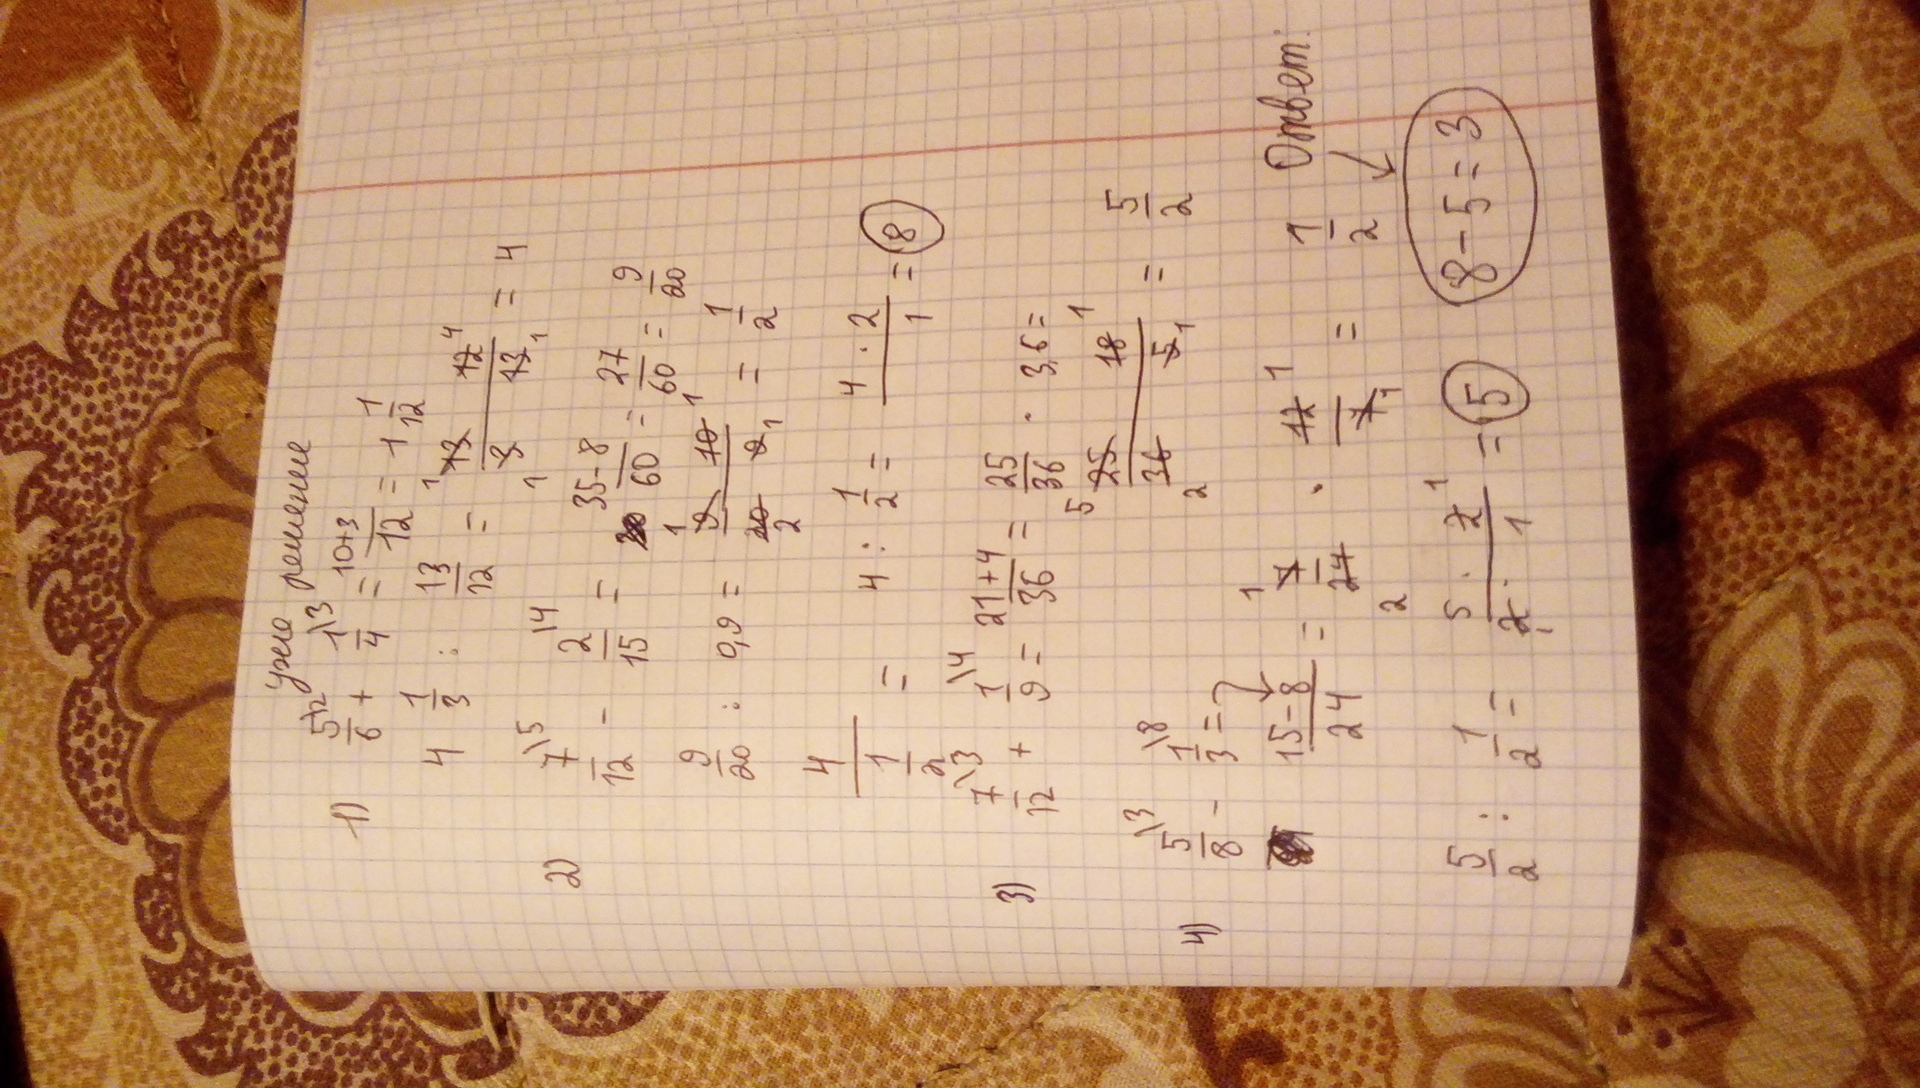 уже решение
1) 5\2/6 + 1\3/4 = 10+3/12 = 1 1/12
4 1/3 : 13/12 = 13/3 12/13 = 4
2) 7\5/12 - 2\4/15 = 35-8/60 = 27/60 = 9/20
9/20 : 0,9 = 9/20 10/9 = 1/2
4/1/2 = 4 : 1/2 = 4 · 2/1 = 8
3) 7\3/12 + 1\4/9 = 21+4/36 = 25/36 · 3,6 =
25/36 18/5 = 5/2
4) 5\3/8 - 1\8/3 =
15-8/24 = 7/24 · 12/7 = 1/2 Ответ:
5/2 : 1/2 = 5 · 2/2 · 1 = 5 8-5=3